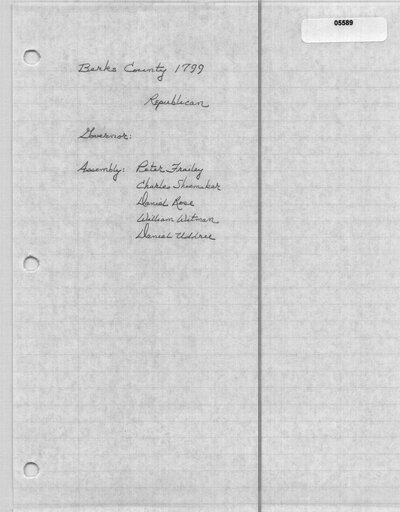 05589
Berks County 1799
Republican
Governor:
Assembly: Peter Frailey
Charles Shoemaker
Daniel Rose
William Witman
Daniel Uddree